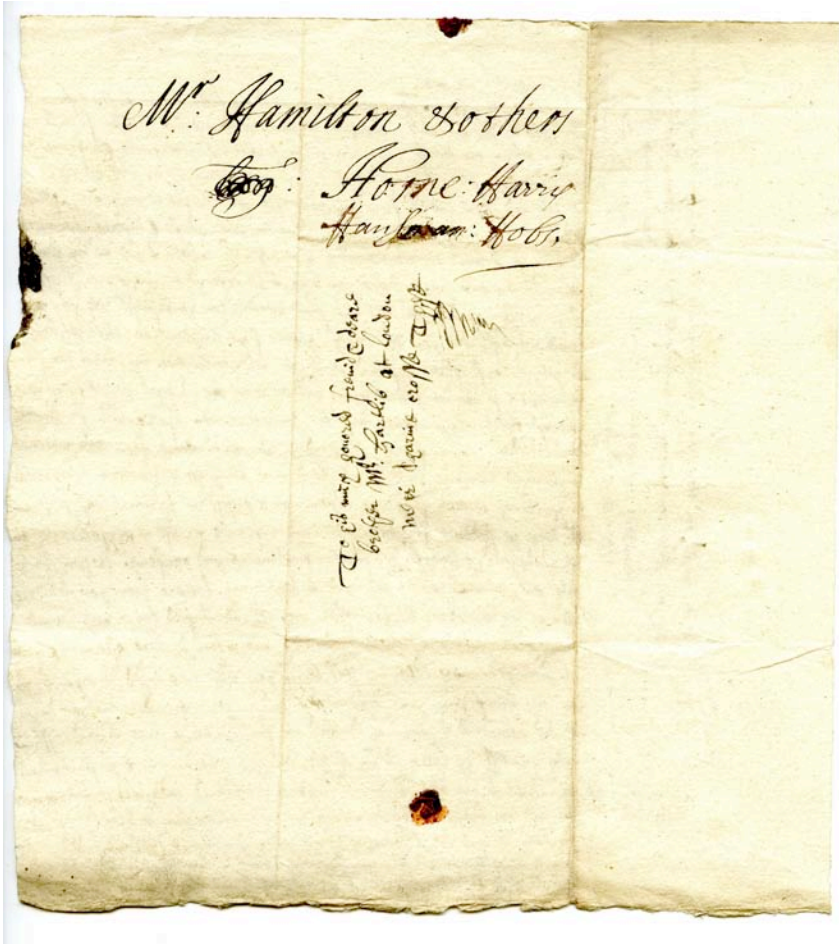 Mr: Hamilton & others
: Home: Harry
Hausman: Hobs.
To his much honored freind & deare
brother Mr. Hartlib at London
neir Charing crosse These